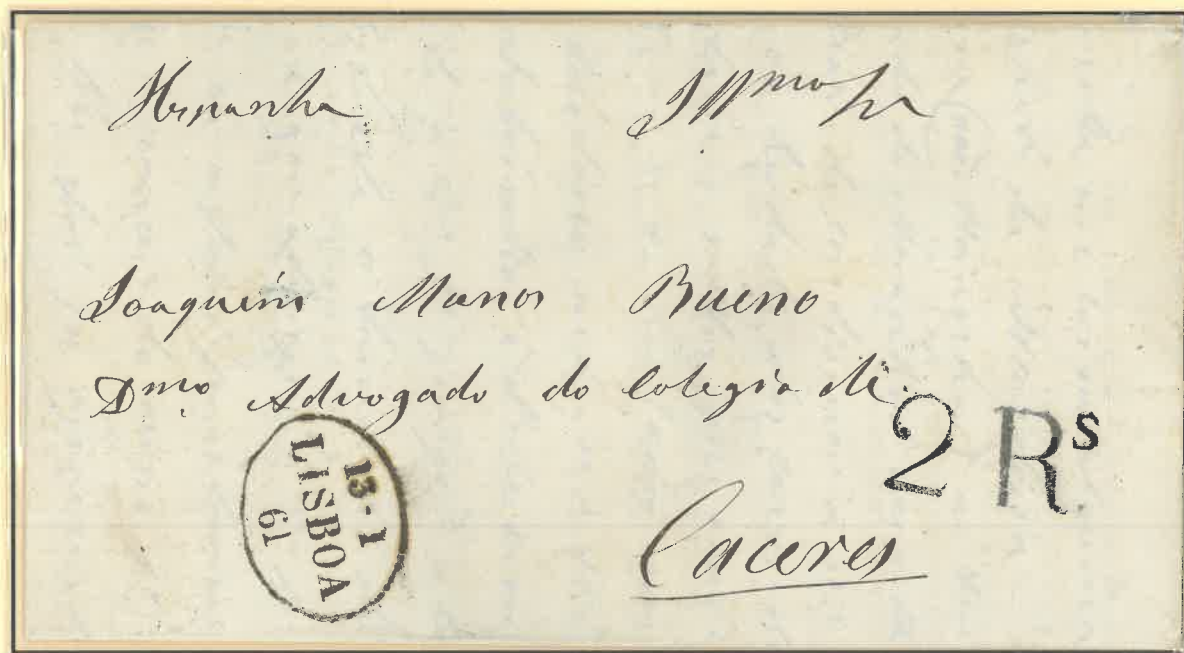 Hespanha Illmo Sr
Joaquim Munos Bueno
Dmo Advogado do Colegio de
2 Rs
Caceres
13-1
LISBOA
61